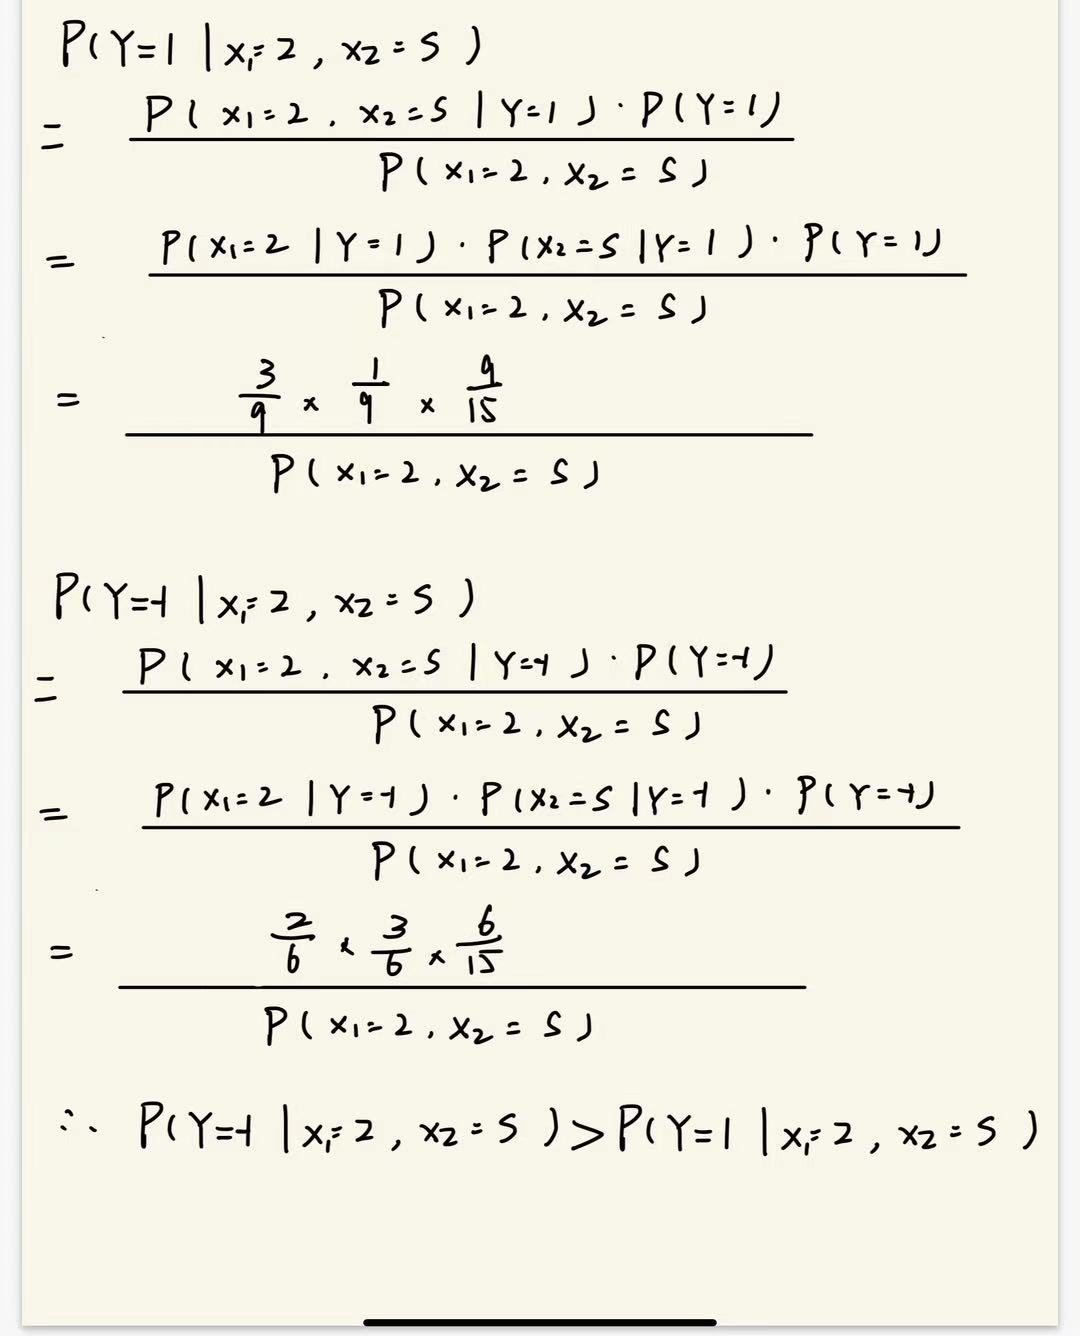 P(Y=1 | x₁=2, x₂=S)
= P(x₁=2, x₂=S | Y=1) · P(Y=1)
P(x₁=2, x₂=S)
= P(x₁=2 | Y=1) · P(x₂=S | Y=1) · P(Y=1)
P(x₁=2, x₂=S)
= 3/9 × 1/9 × 9/15
P(x₁=2, x₂=S)
P(Y=-1 | x₁=2, x₂=S)
= P(x₁=2, x₂=S | Y=-1) · P(Y=-1)
P(x₁=2, x₂=S)
= P(x₁=2 | Y=-1) · P(x₂=S | Y=-1) · P(Y=-1)
P(x₁=2, x₂=S)
= 2/6 × 3/6 × 6/15
P(x₁=2, x₂=S)
∴ P(Y=-1 | x₁=2, x₂=S) > P(Y=1 | x₁=2, x₂=S)